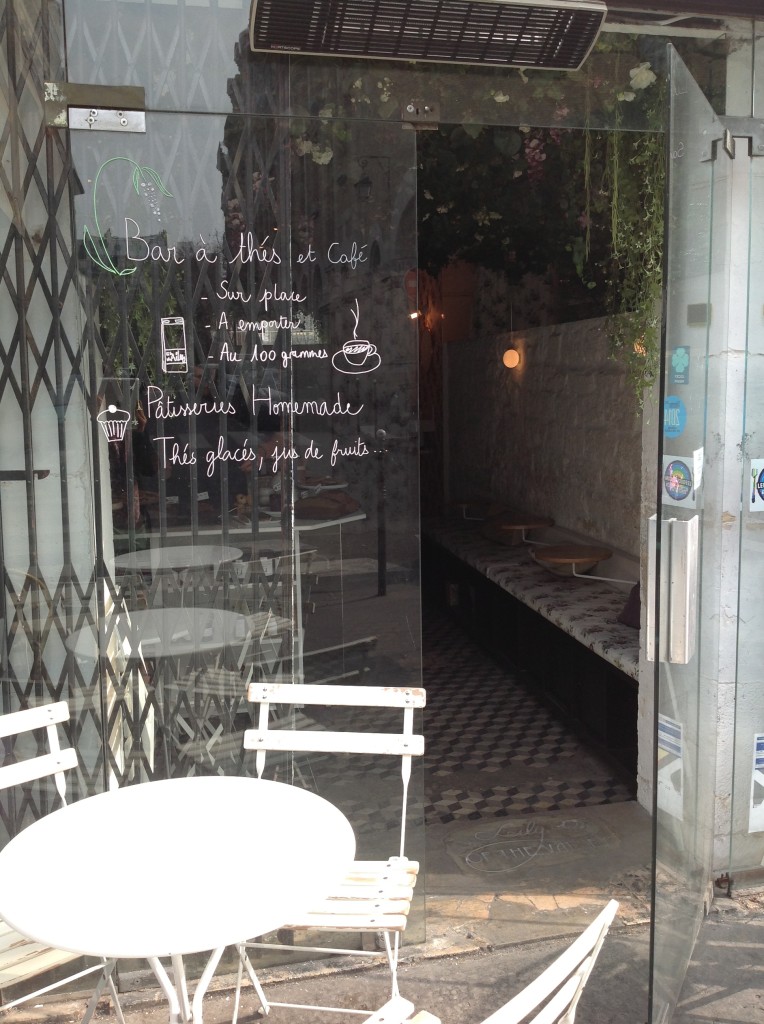 Bar à thés et Café
- Sur place
- A emporter
- Au 100 grammes
Pâtisseries Homemade
Thés glacés, jus de fruits...